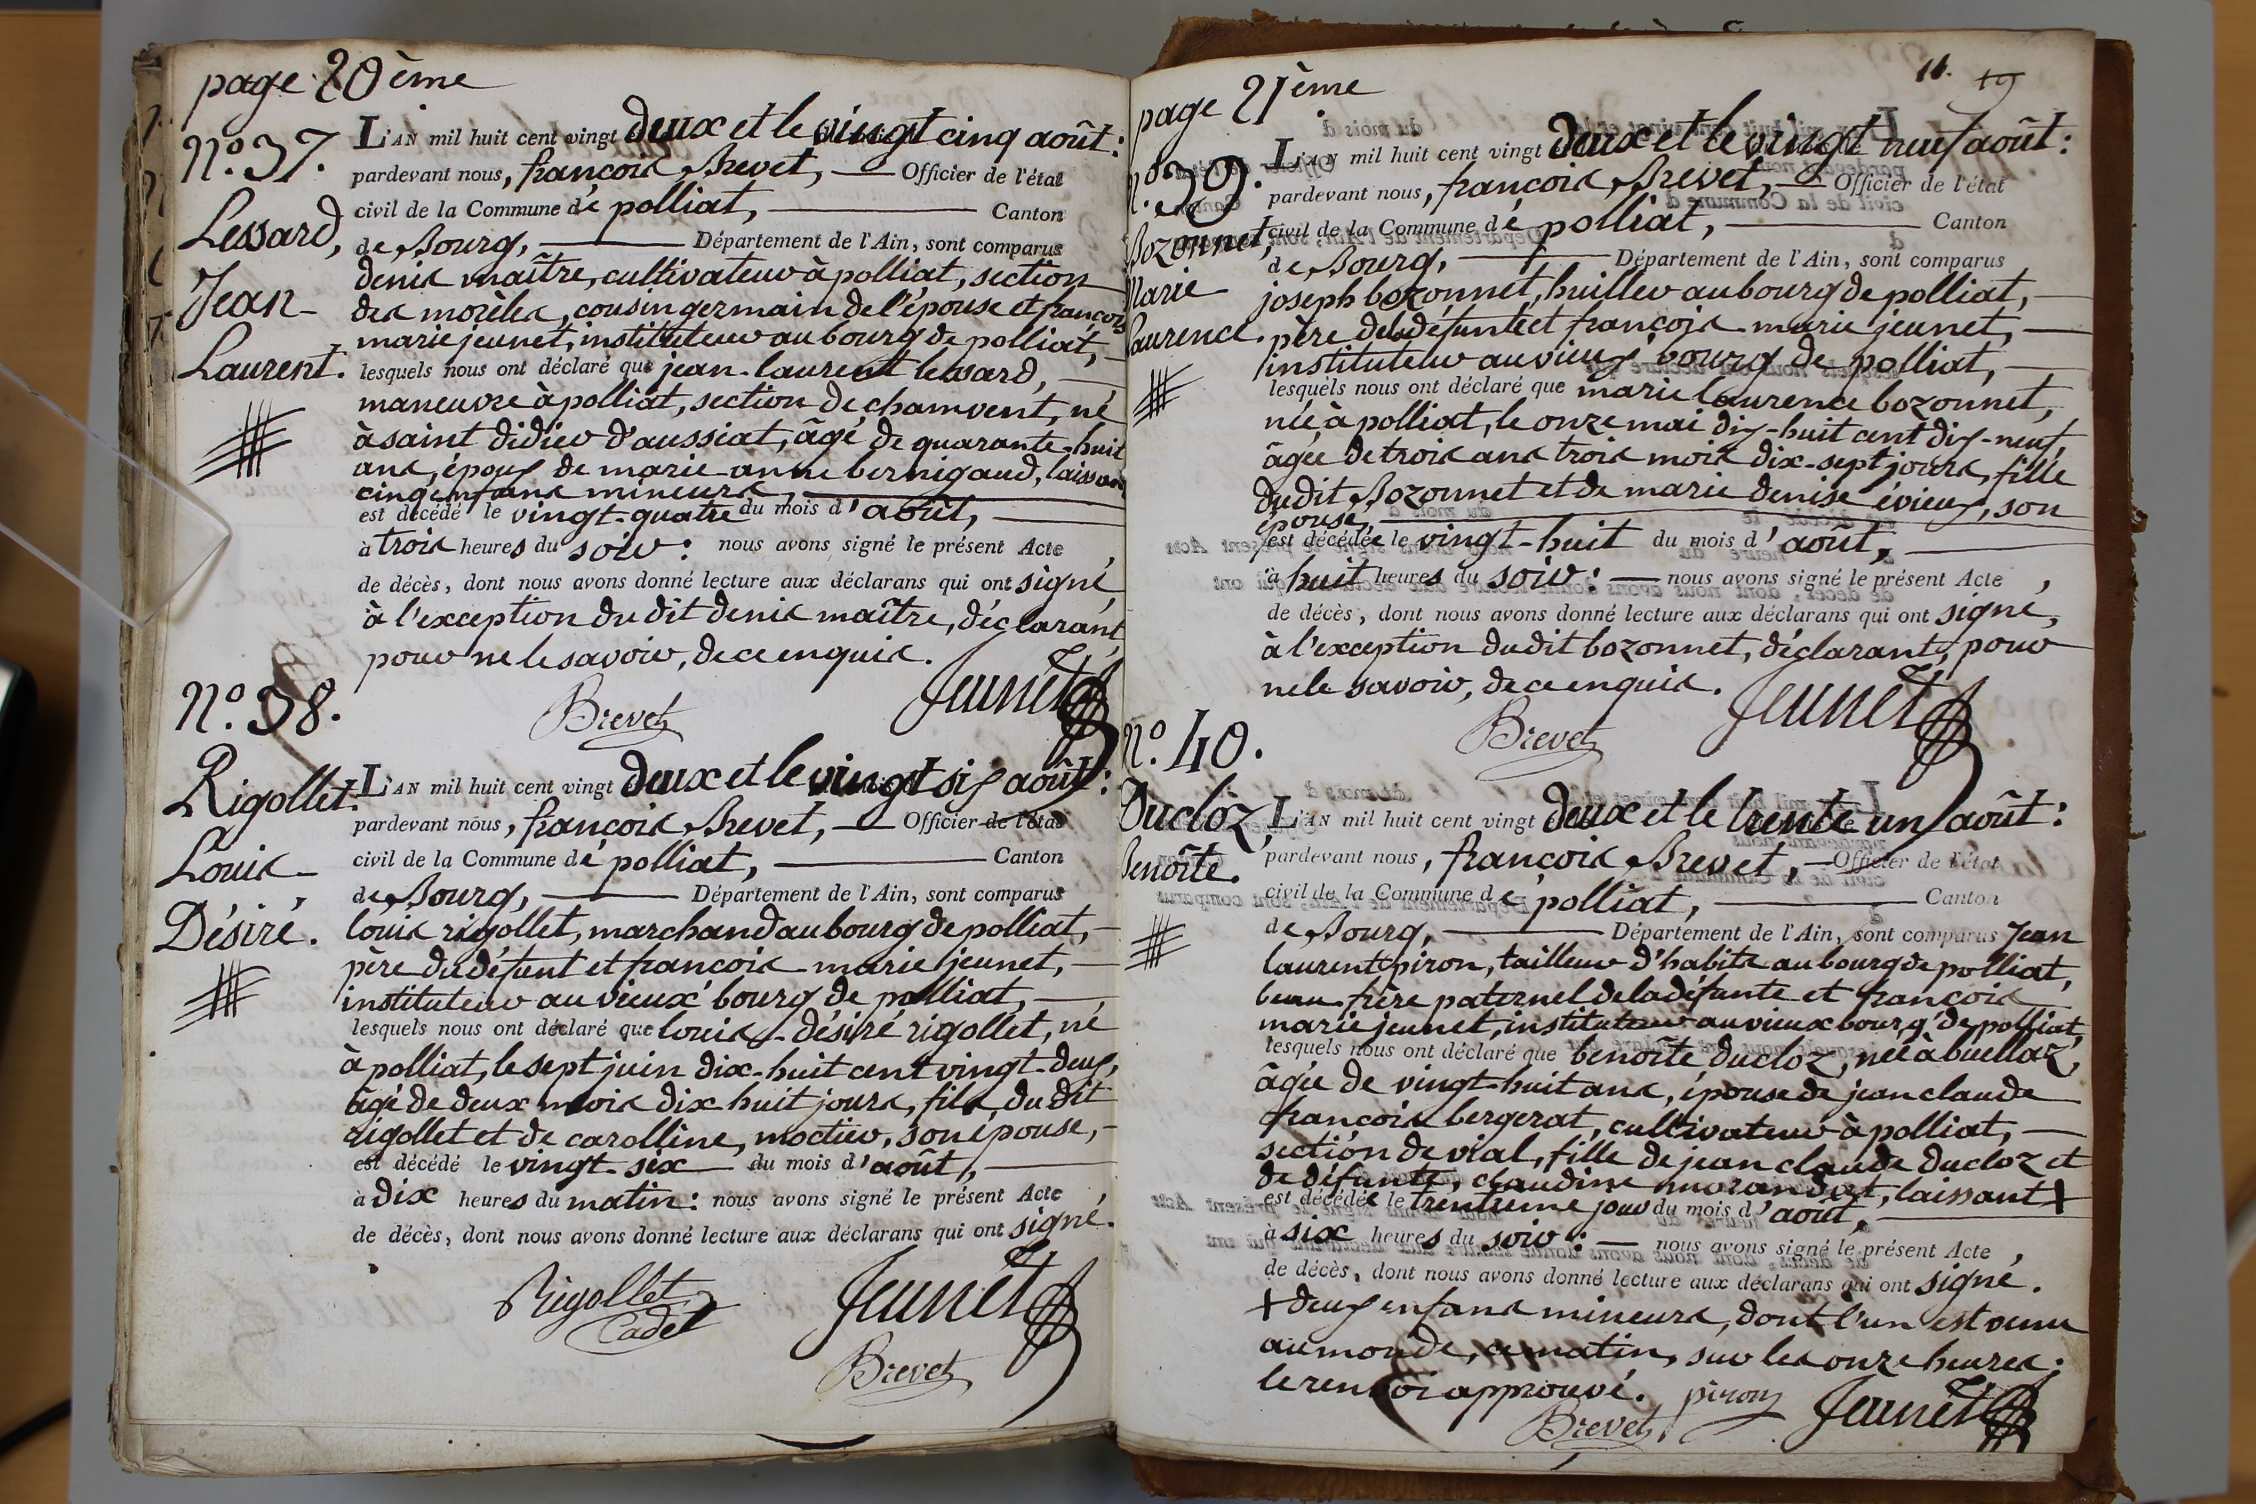 page 20ème
N.° 37.
Lessard,
Jean-
Laurent.
L'AN mil huit cent vingt deux et le vingt cinq août:
pardevant nous, françois Brevet, — Officier de l'état
civil de la Commune dé polliat, — Canton
de Bourg, — Département de l'Ain, sont comparus
denis maître, cultivateur à polliat, section
des morêles, cousin germain de l'épouse et françois
marie jeunet, instituteur au bourg de polliat,
lesquels nous ont déclaré que jean-laurent lessard,
maneuvre à polliat, section de chamvent, né
à saint didier d'aussiat, âgé de quarante-huit
ans, époux de marie-anne bernigaud, laissant
cinq enfans mineurs
est décédé le vingt-quatre du mois d'août,
à trois heures du soir: nous avons signé le présent Acte
de décès, dont nous avons donné lecture aux déclarans qui ont signé,
à l'exception du dit denis maître, déclarant,
pour ne le savoir, de ce enquis.
Brevet Jeunet
N.° 38.
Rigollet.
Louis-
Désiré.
L'AN mil huit cent vingt deux et le vingt six août:
pardevant nous, françois Brevet, — Officier de l'état
civil de la Commune dé polliat, — Canton
de Bourg, — Département de l'Ain, sont comparus
louis rigollet, marchand au bourg de polliat,
père du défunt et françois-marie jeunet,
instituteur au vieux bourg de polliat,
lesquels nous ont déclaré que louis-désiré rigollet, né
à polliat, le sept juin dix-huit cent vingt-deux,
âgé de deux mois dix huit jours, fils, du dit
rigollet et de carolline, moctier, son épouse,
est décédé le vingt-six du mois d'août,
à dix heures du matin: nous avons signé le présent Acte,
de décès, dont nous avons donné lecture aux déclarans qui ont signé.
Rigollet Jeunet
Cadet
Brevet
11. 19
page 21ème
N.° 39.
Bozonnet,
Marie
Laurence.
L'AN mil huit cent vingt deux et le vingt neuf août:
pardevant nous, françois Brevet, — Officier de l'état
civil de la Commune dé polliat, — Canton
de Bourg, — Département de l'Ain, sont comparus
joseph bozonnet, huillier au bourg de polliat,
père de la défunte et françois-marie jeunet,
instituteur au vieux bourg de polliat,
lesquels nous ont déclaré que marie laurence bozonnet,
née à polliat, le onze mai dix-huit cent dix-neuf,
âgée de trois ans trois mois dix-sept jours, fille
du dit Bozonnet et de marie denise évieux, son
épouse,
est décédée le vingt-huit du mois d'août,
à huit heures du soir: — nous avons signé le présent Acte,
de décès, dont nous avons donné lecture aux déclarans qui ont signé,
à l'exception du dit bozonnet, déclarant, pour
ne le savoir, de ce enquis.
Brevet Jeunet
N.° 40.
Ducloz,
Benoîte.
L'AN mil huit cent vingt deux et le trente un août:
pardevant nous, françois Brevet, — Officier de l'état
civil de la Commune dé polliat, — Canton
de Bourg, — Département de l'Ain, sont comparus Jean
laurent piron, tailleur d'habits au bourg de polliat,
beau-frère paternel de la défunte et françois
marie jeunet, instituteur au vieux bourg de polliat,
lesquels nous ont déclaré que benoîte ducloz, née à buellaz,
âgée de vingt-huit ans, épouse de jean claude
françois bergerat, cultivateur à polliat,
section de vial, fille de jean claude ducloz et
de défunte, claudine morandat, laissant +
est décédée le trentième jour du mois d'août,
à six heures du soir: — nous avons signé le présent Acte,
de décès, dont nous avons donné lecture aux déclarans qui ont signé.
+ deux enfans mineurs, dont l'un est venu
au monde, ce matin, sur les onze heures;
le renvoi approuvé.
piron
Brevet Jeunet